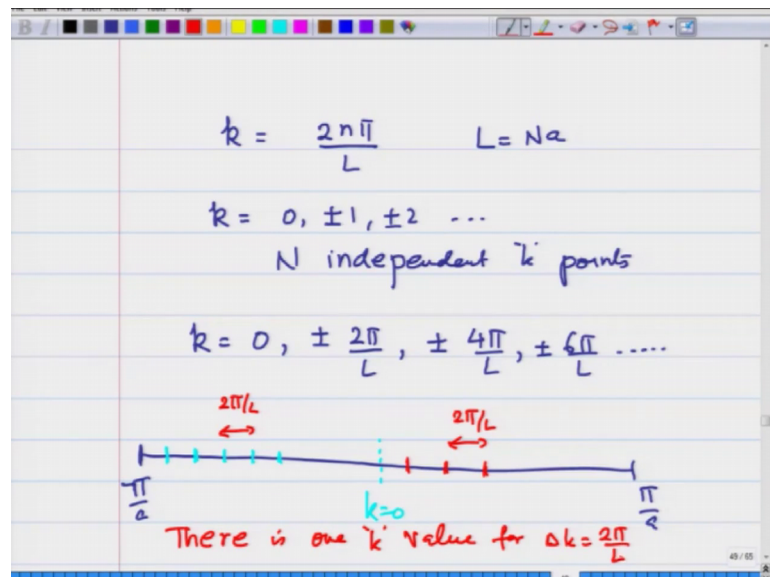 k = 2nπ/L L = Na
k = 0, ±1, ±2 ...
N independent 'k' points
k = 0, ± 2π/L, ± 4π/L, ± 6π/L .....
2π/L 2π/L
-π/a k=0 π/a
There is one 'k' value for Δk = 2π/L
49 / 65